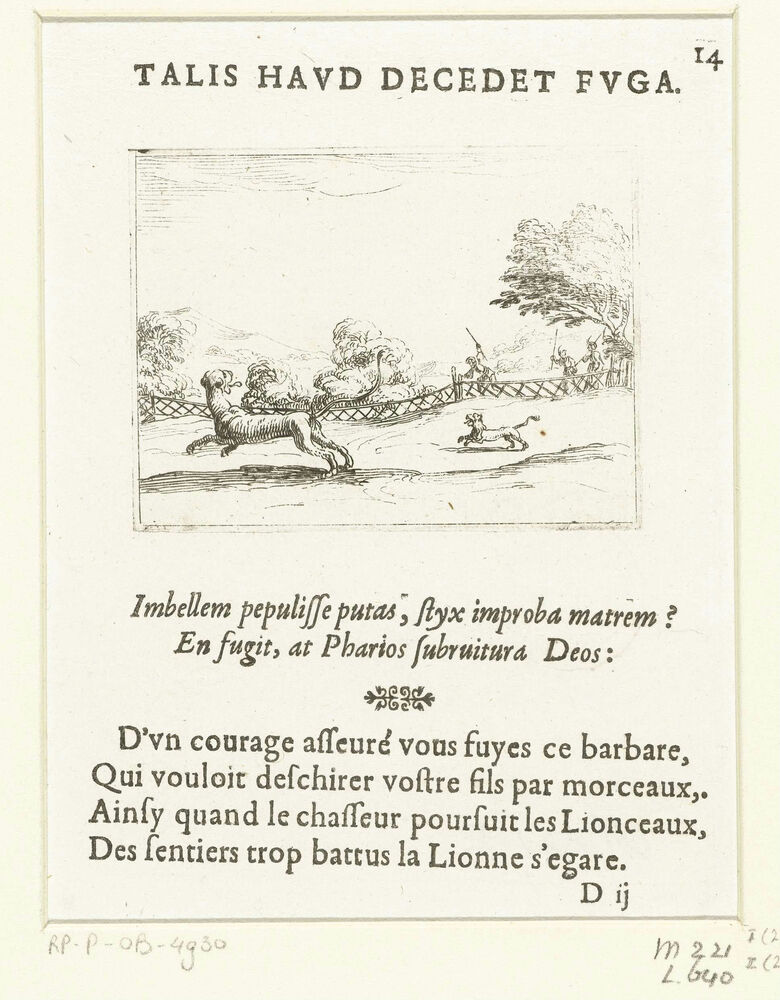 14
TALIS HAVD DECEDET FVGA.
Imbellem pepuliſſe putas, ſtyx improba matrem ?
En fugit, at Pharios ſubruitura Deos :
D'vn courage aſſeuré vous fuyes ce barbare,
Qui vouloit deſchirer voſtre fils par morceaux,.
Ainſy quand le chaſſeur pourſuit les Lionceaux,
Des ſentiers trop battus la Lionne s'egare.
D ij
RP-P-OB-4930
M 221 I (2
L. 640 II (2